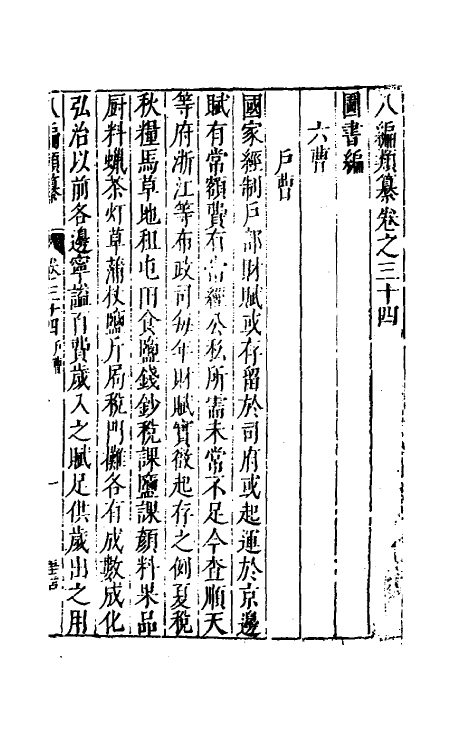 八編類纂卷之三十四
圖書編
六曹
戶曹
國家經制戶部財賦或存留於司府或起運於京邊
賦有常額費有常經公私所需未常不足今查順天
等府浙江等布政司每年財賦實徵起存之例夏稅
秋糧馬草地租屯田食鹽錢鈔稅課鹽課顏料果品
厨料蠟茶灯草蒲杖鹽斤房稅門攤各有成數成化
弘治以前各邊寧謐百費歲入之賦足供歲出之用
八編類纂 卷三十四 戶曹 一